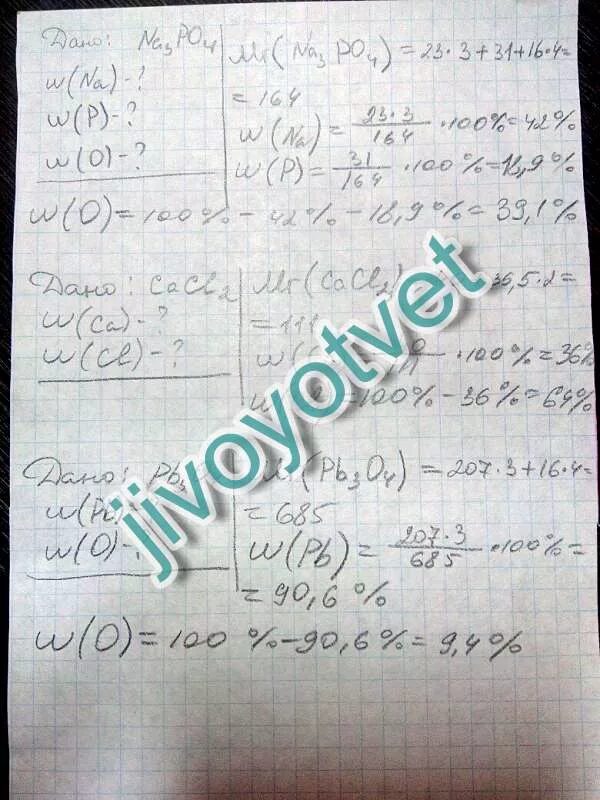 Дано: Na₃PO₄
w(Na)-?
w(P)-?
w(O)-?
Mr(Na₃PO₄) = 23·3+31+16·4=
= 164
w(Na) = 23·3/164 ·100%=42%
w(P) = 31/164 ·100%=18,9%
w(O) = 100% - 42% - 18,9% = 39,1%
Дано: CaCl₂
w(Ca)-?
w(Cl)-?
Mr(CaCl₂) 35,5·2=
= 111
·100%=36%
=100%-36%=64%
Дано: Pb₃
w(Pb)
w(O)-?
Mr(Pb₃O₄) = 207·3+16·4=
= 685
w(Pb) = 207·3/685 ·100%=
= 90,6%
w(O) = 100%-90,6% = 9,4%
jivoyotvet